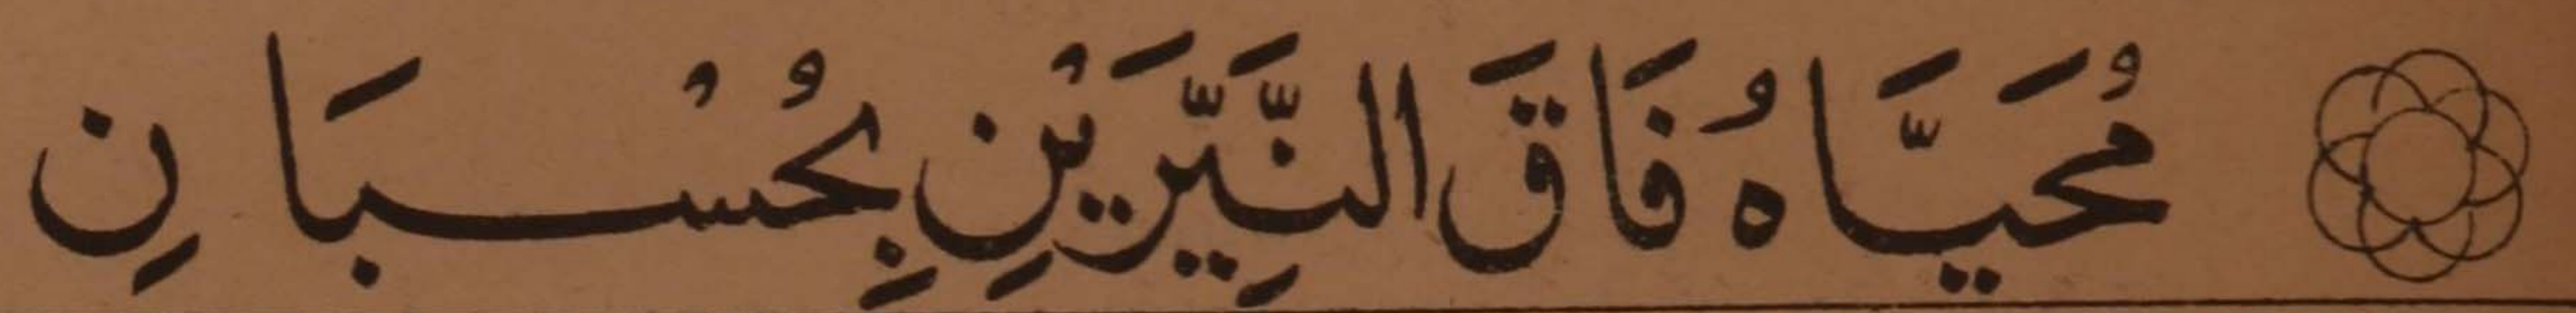 مُحَيَّاهُ فَاقَ النَّيِّرَيْنِ بِحُسْبَانِ